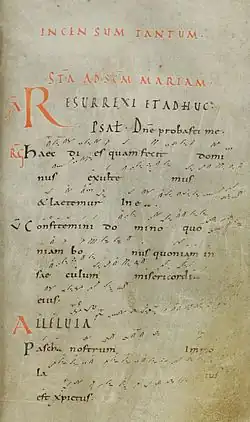 INCENSUM TANTUM.
STA AD SCAM MARIAM.
A RESURREXI ET AD HUC
PSAL Dne probasti me
RG Haec di es quam fecit domi
nus exulte mus
& laetemur In e
V Confitemini do mino quo
niam bo nus quoniam in
sae culum misericordi
eius.
ALLELUIA
Pascha nostrum Immo
la tus
est xpictus